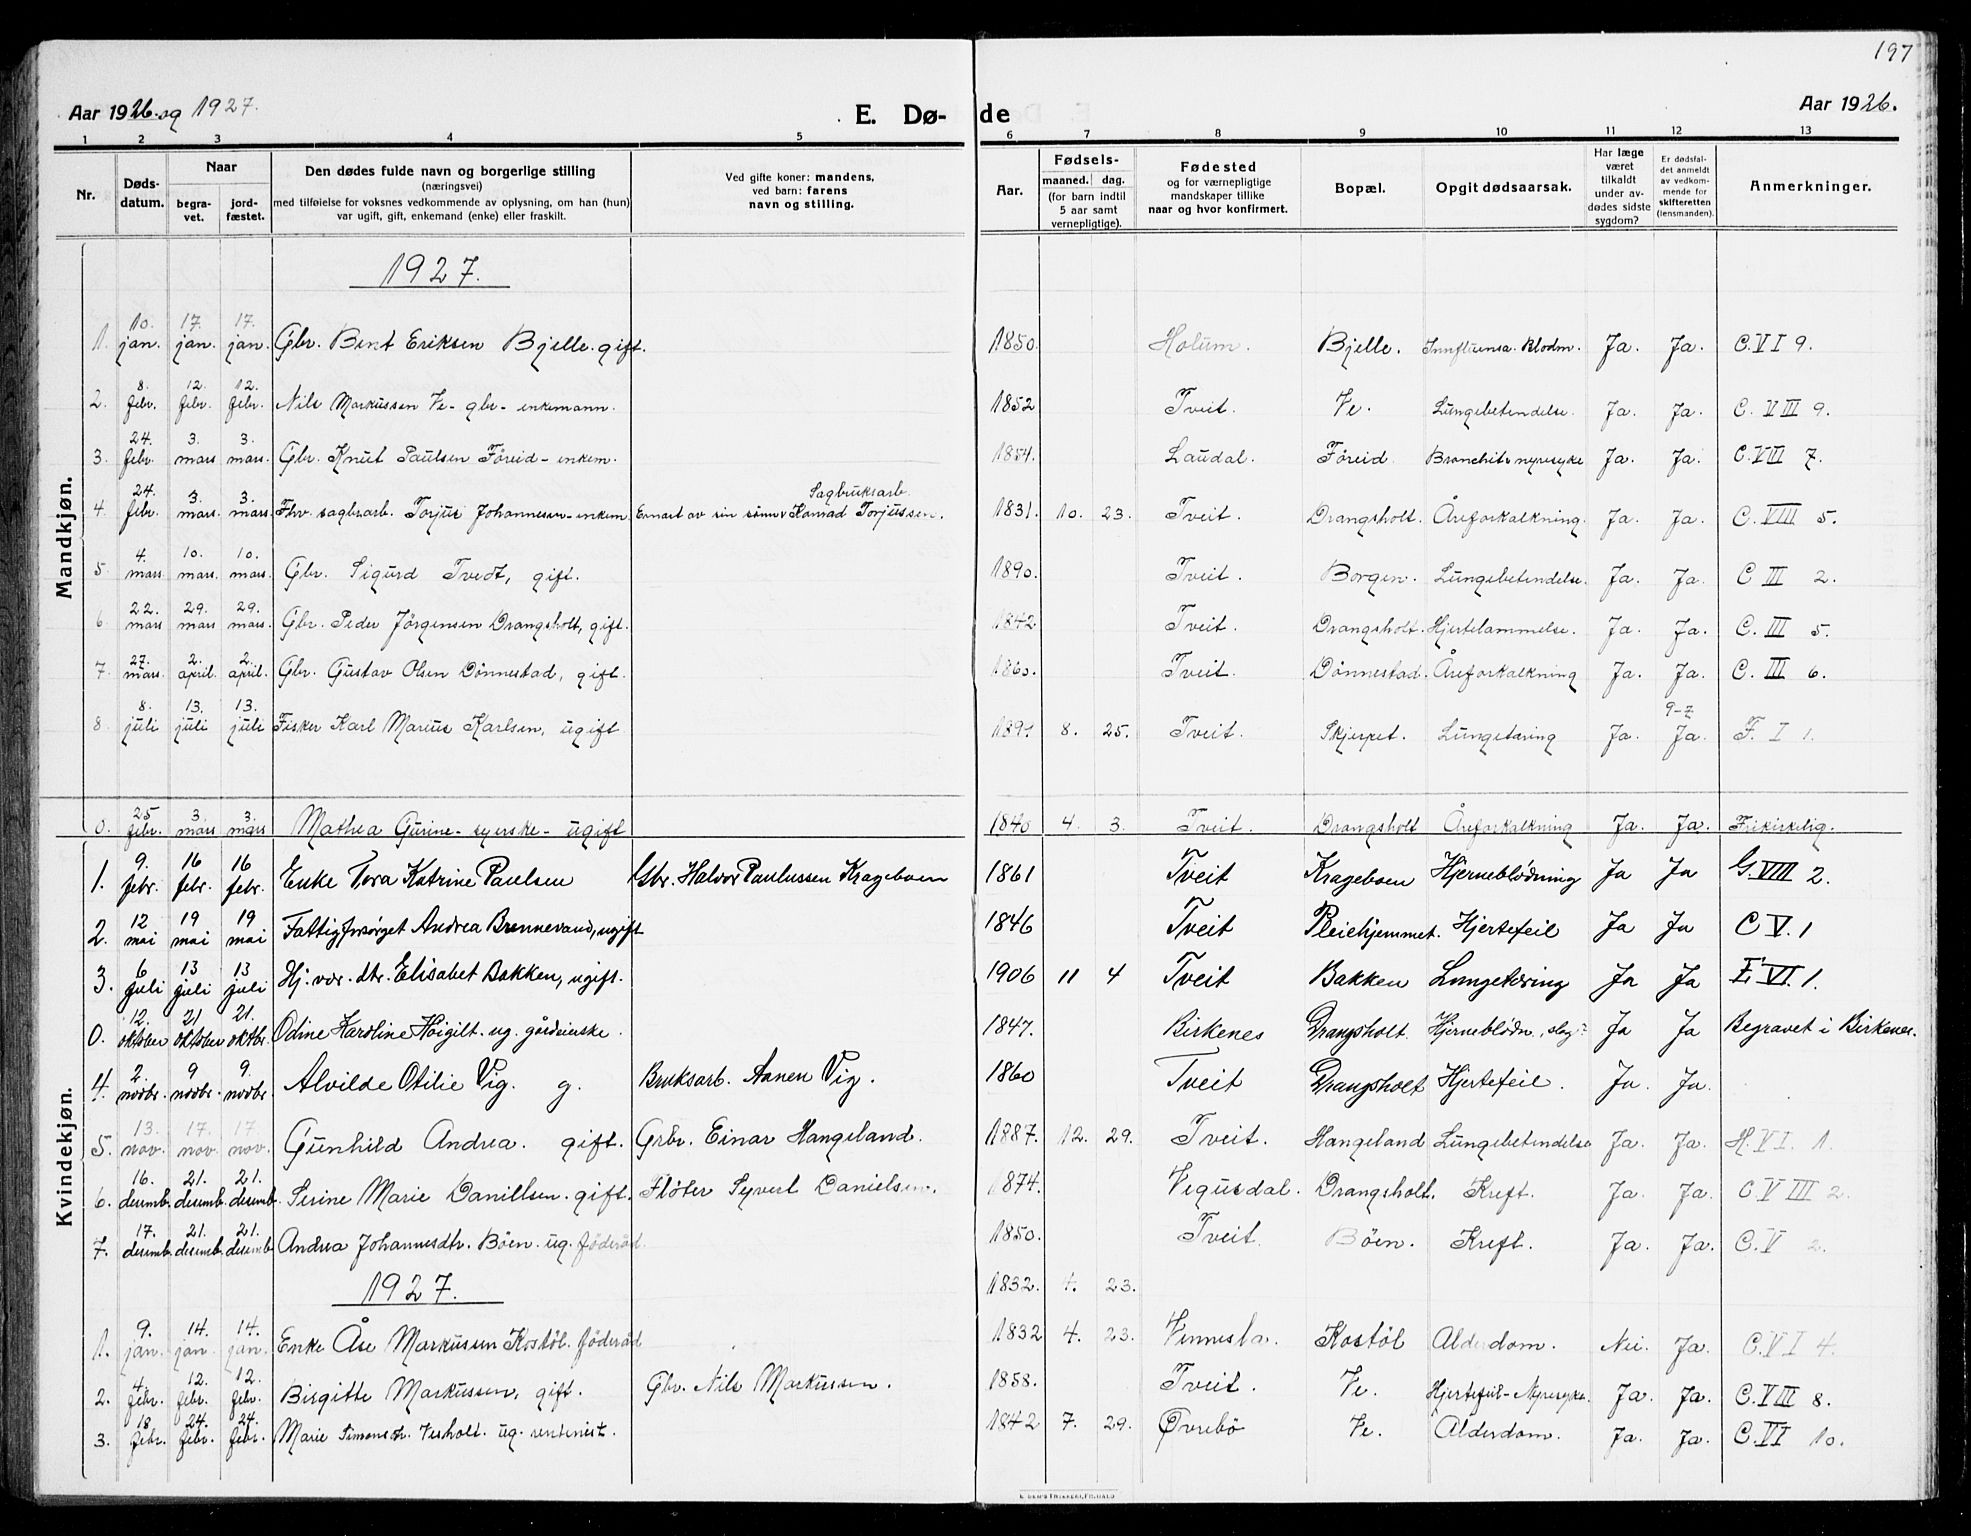 197
Aar 1926. og 1927.
E. Dø-
de
Aar 1926.
1 2 3 4 5 6 7 8 9 10 11 12 13
Nr.
Døds-
datum.
Naar
begra-
vet.
jord-
fæstet.
Den dødes fulde navn og borgerlige stilling
(næringsvei)
med tilføielse for voksnes vedkommende av oplysning, om han (hun)
var ugift, gift, enkemand (enke) eller fraskilt.
Ved gifte koner: mandens,
ved barn: farens
navn og stilling.
Aar.
Fødsels-
maaned. dag.
(for barn indtil
5 aar samt
vernepligtige).
Fødested
og for værnepligtige
mandskaper tillike
naar og hvor konfirmert.
Bopæl.
Opgit dødsaarsak.
Har læge
været
tilkaldt
under av-
dødes sidste
sygdom?
Er dødsfal-
det anmeldt
av vedkom-
mende for
skifteretten
(lensmanden).
Anmerkninger.
Mandkjøn.
1927.
1. 10. jan. 17. jan. 17. jan. Gbr. Bent Eriksen Bjelle. gift. 1850. Holum. Bjelle. Innfluensa. Blodm. Ja. Ja. C. VI 9.
2. 8. febr. 12. febr. 12. febr. Nils Markussen Ve- gbr- enkemann. 1852 Tveit. Ve. Lungebetendelse. Ja. Ja. C. VIII 9.
3. 24. febr. 3. mars 3. mars. Gbr. Knut Paulsen Föreid- enkem. 1854. Laudal. Föreid. Bronchit- nyresyke Ja. Ja. C. VIII 7.
4. 24. febr. 3. mars. 3. mars. Fhv. sagbr.arb. Torjus Johannesen- enkem. Ernært av sin sönn Sagbruksarb. Konrad Torjussen. 1831. 10. 23. Tveit. Drangsholt. Åreforkalkning. Ja. Ja. C. VIII 5.
5. 4. mars. 10. mars. 10. mars. Gbr. Sigurd Tvedt, gift. 1890. Tveit. Borgen. Lungebetendelse. Ja. Ja. C III 2.
6. 22. mars 29. mars 29. mars. Gbr. Peder Jörgensen Drangsholt, gift. 1842 Tveit. Drangsholt. Hjertelammelse. Ja. Ja. C. III 5.
7. 27. mars. 2. april. 2. april. Gbr. Gustav Olsen Dönnestad, gift. 1860. Tveit. Dönnestad. Åreforkalkning Ja. Ja. C. III 6.
8. 8. juli 13. juli 13. juli Fisker Karl Marius Karlsen, ugift 8. 25. Tveit. Skjerpet. Lungetæring Ja. 9-7 Ja. F. I 1.
0. 25 febr. 3. mars 3. mars Mathea Gurine- syerske- ugift 1840 4. 3. Tveit. Drangsholt Åreforkalkning Ja. Ja. Frikirkelig.
Kvindekjøn.
1. 9. febr. 16 febr. 16 febr. Enke Tora Katrine Paulsen Gbr. Halvor Paulussen Krageboen 1861 Tveit Krageboen Hjerneblödning Ja Ja G. VIII 2.
2. 12 mai 19 mai 19 mai Fattigforsörget Andrea Brennevand, ugift 1846 Tveit Pleiehjemmet. Hjertefeil Ja Ja C V. 1
3. 6 juli 13 juli 13 juli Hj. vær. dtr. Elisabet Bakken, ugift. 1906 11 4 Tveit Bakken Lungetæring Ja Ja E. VI. 1.
0. 12. oktober 21 oktober 21. oktbr. Odine Karoline Höigilt. ug. gårdeierske. 1847. Birkenes Drangsholt. Hjerneblödn., slag? Ja Ja Begravet i Birkenes.
4. 2. novbr. 9 novbr. 9. novbr. Alvilde Otilie Vig. g. Bruksarb. Aanen Vig. 1860 Tveit Drangsholt Hjertefeil. Ja. Ja.
5. 13. nov. 17. nov. 17. nov. Gunhild Andrea. gift. Grbr. Einar Hangeland. 1887. 12. 29. Tveit. Hangeland Lungebetendelse Ja. Ja. H. VI. 1.
6. 16. desemb. 21. desemb. 21. desemb. Serine Marie Danillsen. gift. Flöter Syvert Danielsen. 1874. Vegusdal. Drangsholt. Kreft. Ja. Ja. C. VIII 2.
7. 17. desemb. 21. desemb. 21. desemb. Andrea Johannesdtr. Böen. ug. föderåd. 1850. Tveit. Böen. Kreft. Ja. Ja. C. V 2.
1927. 1832. 4. 23.
1. 9. jan. 14. jan. 14. jan. Enke Åse Markussen Kostöl. föderåd 1832 4. 23. Vennesla. Kostöl Alderdom. Nei. Ja. C. VI 4.
2. 4. febr. 12. febr. 12. febr. Birgitte Markussen, gift. Gbr. Nils Markussen. 1858. Tveit. Ve. Hjertefeil- Nyresyke. Ja. Ja. C. VIII 8.
3. 18. febr. 24. febr. 24. febr. Marie Simonsdtr. Vesholt. ug. rentenist. 1842 7. 29. Övrebö Ve. Alderdom. Ja. Ja. C. VI 10.